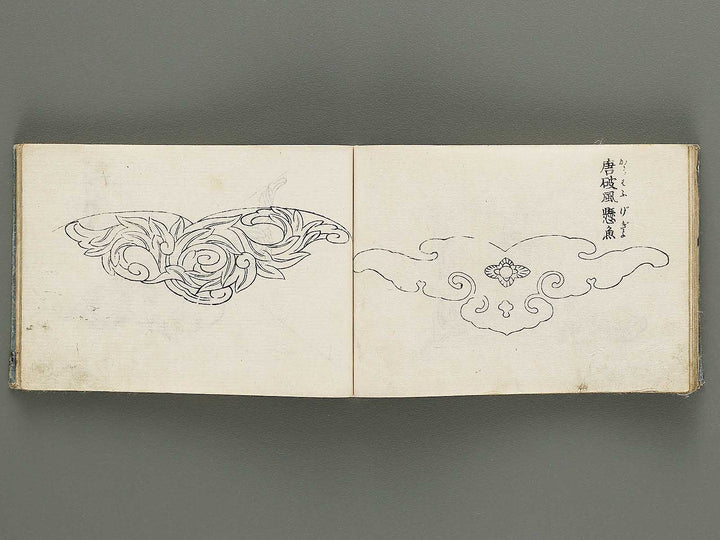 唐破風懸魚
からはふげぎよ